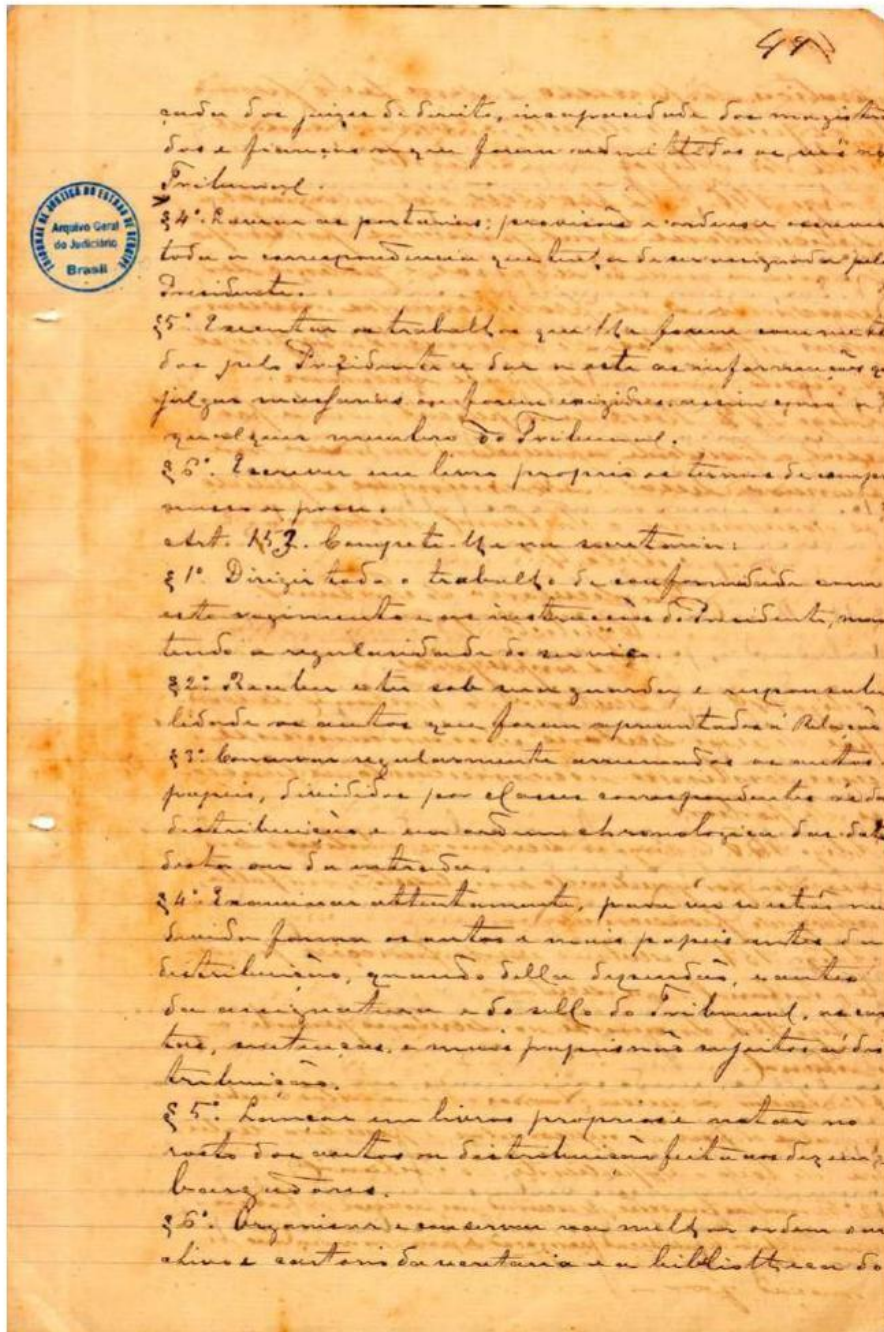 49
cada dos juizes de direito, incapacidade dos magistra
dos e fianças a que forem admittidos os réos no
Tribunal.
TRIBUNAL DE JUSTIÇA DO ESTADO DE SERGIPE
Arquivo Geral
do Judiciário
Brasil
§4º. Lavrar as portarias, provisões e ordens e escrever
toda a correspondencia que tenha de ser assignada pelo
Presidente.
§5º. Executar os trabalhos que lhe forem commetti
dos pelo Prezidente e dar a este as informações q
julgar necessarias ou forem exigidas, assim como a
qualquer membro do Tribunal.
§6º. Escrever em livro proprio os termos de comp
misso e posse.
Art. 153. Compete-lhe na secretaria:
§1º. Dirigir todo o trabalho de conformidade com
este regimento e as instrucções do Presidente, man
tendo a regularidade do serviço.
§2º. Receber e ter sob sua guarda e responsabi
lidade os autos que forem apresentados á Relação
§3º. Conservar regularmente arrumados os autos e
papeis, divididos por classes correspondentes ás da
distribuição e em ordem chronologica das datas
desta ou da entrada.
§4º. Examinar attentamente, para ver se estão na
devida forma os autos e mais papeis antes da
distribuição, quando della dependão, e antes
da assignatura e do sello do Tribunal, as car
tas, sentenças e mais papeis não sujeitos á dis
tribuição.
§5º. Lançar em livros proprios e notar no
rosto dos autos a distribuição feita aos dezem
bargadores.
§6º. Organisar e conservar na melhor ordem o ar
chivo e cartorio da secretaria e a bibliotheca do